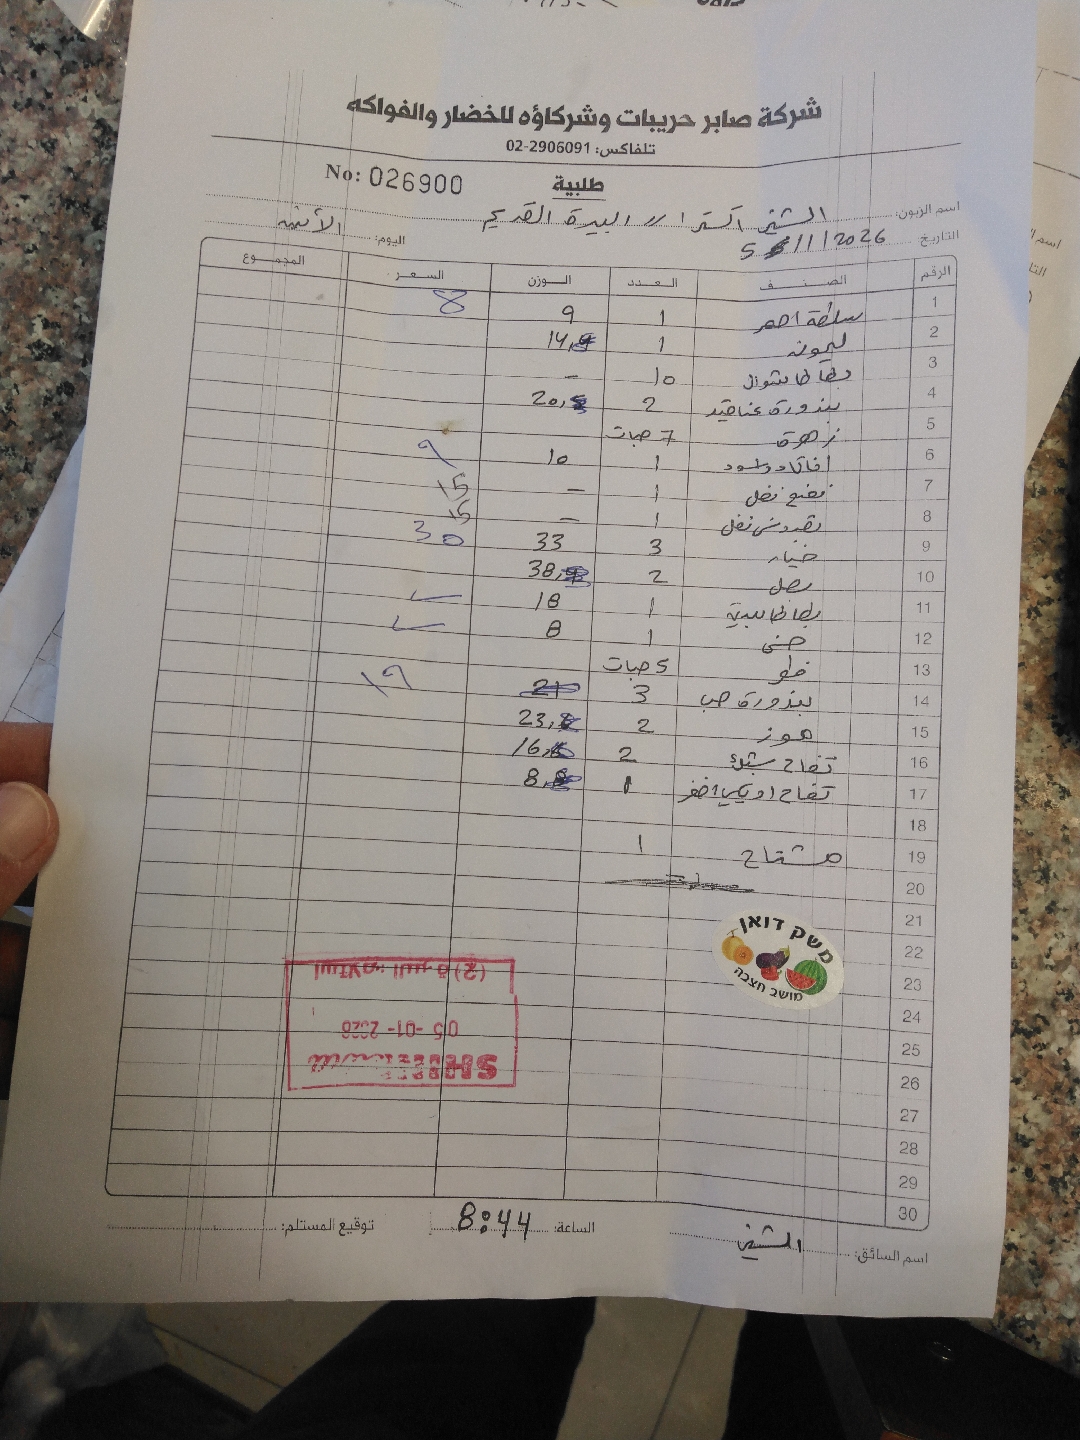 شركة صابر حريبات وشركاؤه للخضار والفواكه
تلفاكس: 02-2906091
No: 026900
طلبية
اسم الزبون: الشني اكسترا // البيرة القديم
التاريخ 5/1/2026 اليوم: الأثنين
الرقم الصنف العدد الوزن السعر المجموع
1 سلطة احمر 1 9 8
2 ليمونه 1 14,
3 بطاطا شوال 10 -
4 بندورة عناقيد 2 20,
5 زهرة 7 حبات
6 1 10 9
7 نعنع نفل 1 - 15
8 بقدونس نفل 1 - 15
9 خيار 3 33 30
10 بصل 2 38,
11 بطاطا 1 18
12 1 8
13 5 حبات
14 بندورة حب 3 21 19
15 موز 2 23,
16 تفاح 2 16,
17 تفاح 1 8,
18
19 مشتاح 1
20
21
22
23
24
25
26
27
28
29
30
משק דואן
מושב חצבה
(2)
05 -01- 2026
اسم السائق: الشني الساعة: 8:44 توقيع المستلم: